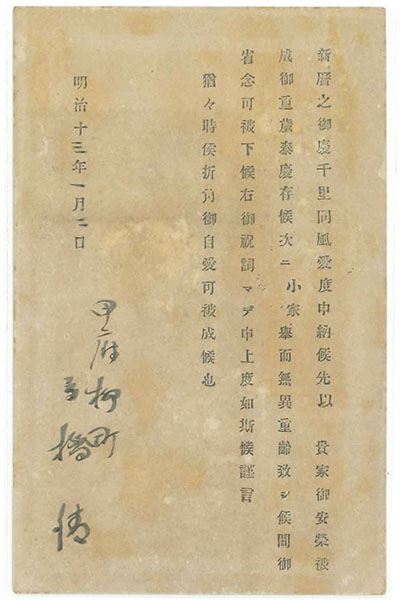 新暦之御慶千里同風愛度申納候先以 貴家御安榮被
成御重歳泰慶存候次ニ 小家擧而無異重齡致シ候間御
省念可被下候右御祝詞マデ申上度如斯候謹言
猶々時侯折角御自愛可被成候也
明治十三年一月二日
甲府柳町
橋